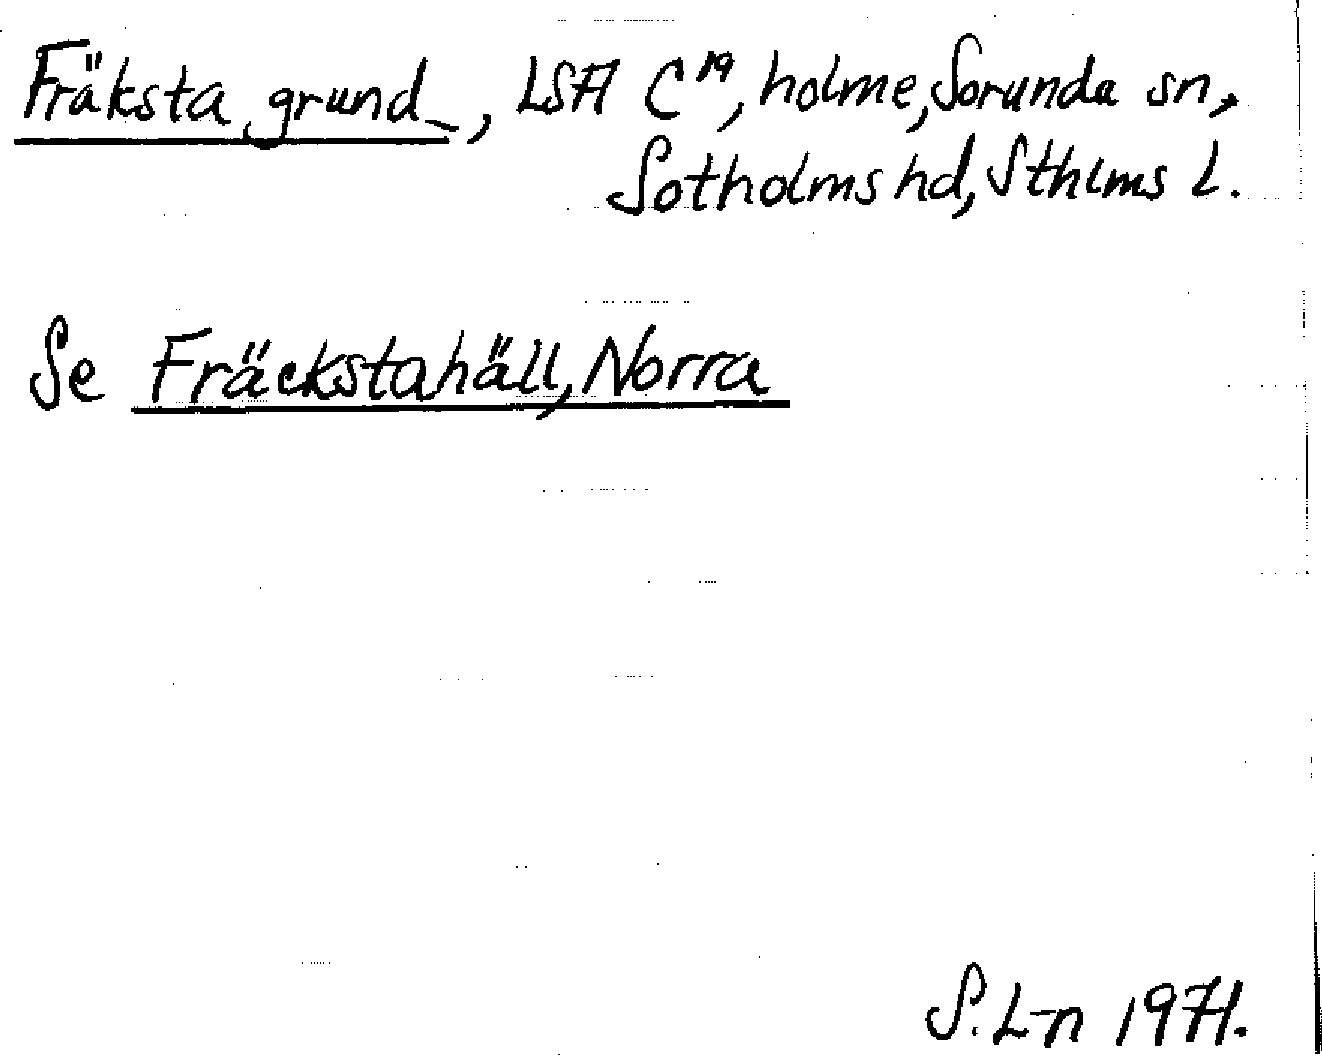 Fräksta grund_, LSA C¹⁹, holme, Sorunda sn,
Sotholms hd, Sthlms L.
Se Fräckstahäll, Norra
S. L-n 1971.